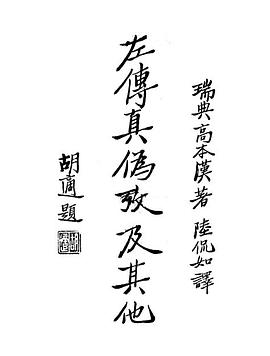 瑞典高本漢著 陸侃如譯
左傳真偽攷及其他
胡適題